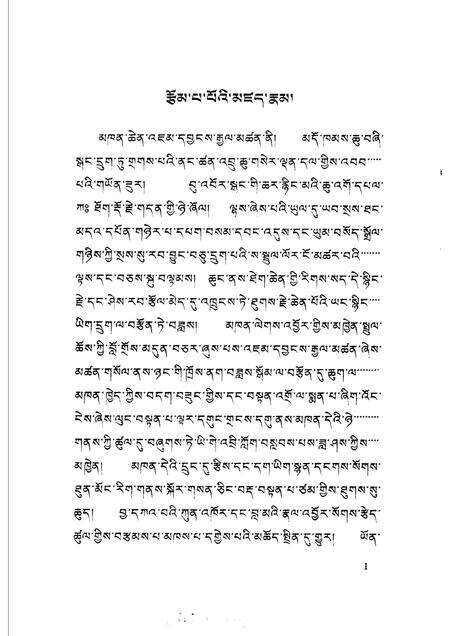 རྩོམ་པ་པོའི་མཛད་རྣམ།
མཁན་ཆེན་འཇམ་དབྱངས་རྒྱལ་མཚན་ནི། མདོ་ཁམས་ཆུ་བཞི་
སྒང་དྲུག་ཏུ་གྲགས་པའི་ནང་ཚན་འབྲུ་ཆུ་གསེར་ལྡན་དལ་གྱིས་འབབ་་་་་
པའི་གཡོན་ཟུར། བུ་འབོར་སྒང་གི་ཆར་རྙིང་མའི་ཆུ་འགོ་དཔལ་
ཀཿ ཐོག་རྡོ་རྗེ་གདན་གྱི་ཉེ་ཞོལ། ལྷས་ཞེས་པའི་ཡུལ་དུ་ཡབ་སྲས་ཐང་
མདའ་དཔོན་གཉེར་པ་དཔག་བསམ་དབང་འདུས་དང་ཡུམ་བསོད་སྒྲོལ་
གཉིས་ཀྱི་སྲས་སུ་རབ་བྱུང་བཅུ་དྲུག་པའི་ས་སྦྲུལ་ལོར་ངོ་མཚར་བའི་་་་་་
ལྟས་དང་བཅས་སྐུ་བལྟམས། ཆུང་ནས་ཐེག་ཆེན་གྱི་རིགས་སད་དེ་སྙིང་
རྗེ་དང་ཤེས་རབ་རྩོལ་མེད་དུ་འཁྲུངས་ཏེ་ཐུགས་རྗེ་ཆེན་པོའི་ཡང་སྙིང་་་་་
ཡིག་དྲུག་ལ་བརྩོན་ཏེ་བཟླས། མཁན་ལེགས་འབྱོར་གྱིས་མཁྱེན་སྤྲུལ་
ཆོས་ཀྱི་བློ་གྲོས་མདུན་བཅར་ཞུས་པས་འཇམ་དབྱངས་རྒྱལ་མཚན་ཞེས་
མཚན་གསོལ་ནས་ཉང་གི་ཁྲོས་ནག་བཟླས་སྒོམ་ལ་བརྩོན་དུ་ཆུག་ལ་་་་་་་
མཁན་ཁྱེད་ཀྱིས་བདག་བཟུང་གྱིས་དང་བསྟན་འགྲོ་ལ་སྨན་པ་ཞིག་འོང་
ངེས་ཞེས་ལུང་བསྟན་པ་ལྟར་དགུང་གྲངས་དགུ་ནས་མཁན་དེའི་ཉེ་་་་་་་་
གནས་ཀྱི་ཚུལ་དུ་བཞུགས་ཏེ་ཡི་གེ་འབྲི་ཀློག་བསླབས་པས་ཟླ་ཤས་ཀྱིས་་་་
མཁྱེན། མཁན་དེའི་དྲུང་དུ་རྩིས་དང་དག་ཡིག་སྙན་ངངགས་སོགས་
ཐུན་མོང་རིག་གནས་སྐོར་གསན་ཅིང་བརྡ་བསྟན་པ་ཙམ་གྱིས་ཐུགས་སུ་
ཆུད། བྱ་དཀའ་བའི་ཀུན་འཁོར་དང་བླ་མའི་རྣལ་འབྱོར་སོགས་རྩེད་
ཚུལ་གྱིས་བརྩམས་པ་མཁས་པ་དགྱེས་པའི་མཆོད་སྤྲིན་དུ་གྱུར། ཡོན་
1